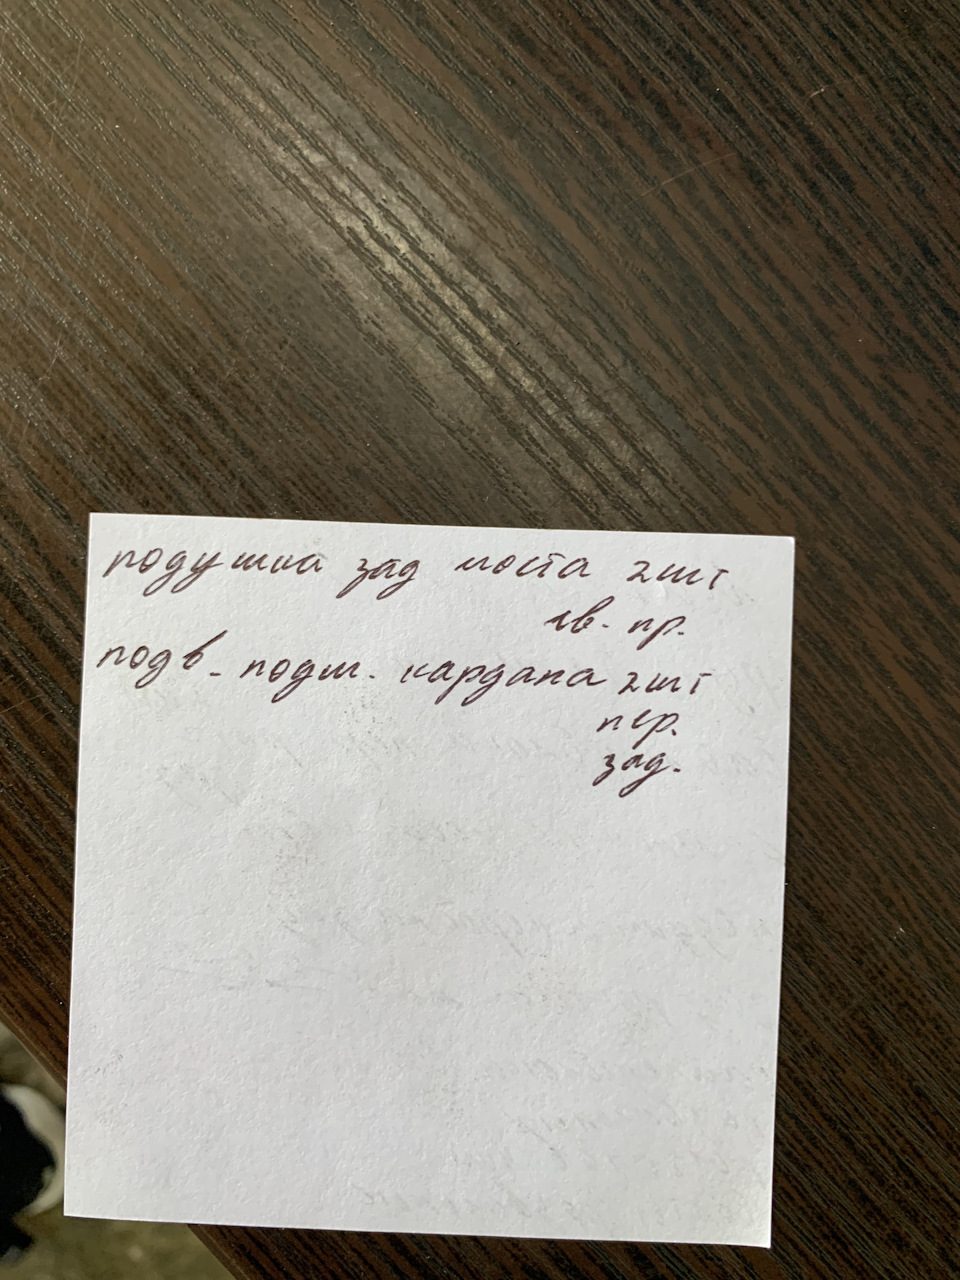 подушка зад моста 2шт
лв. пр.
подв. подш. кардана 2шт
пер.
зад.